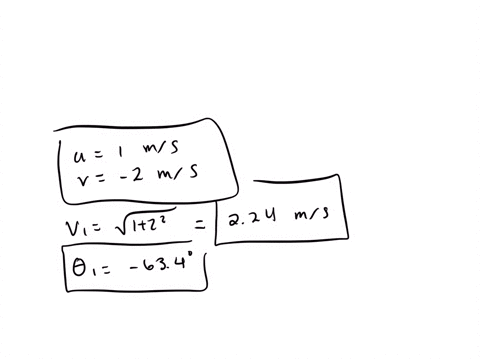 u = 1 m/s
v = -2 m/s
V₁ = √1+2² = 2.24 m/s
θ₁ = -63.4°